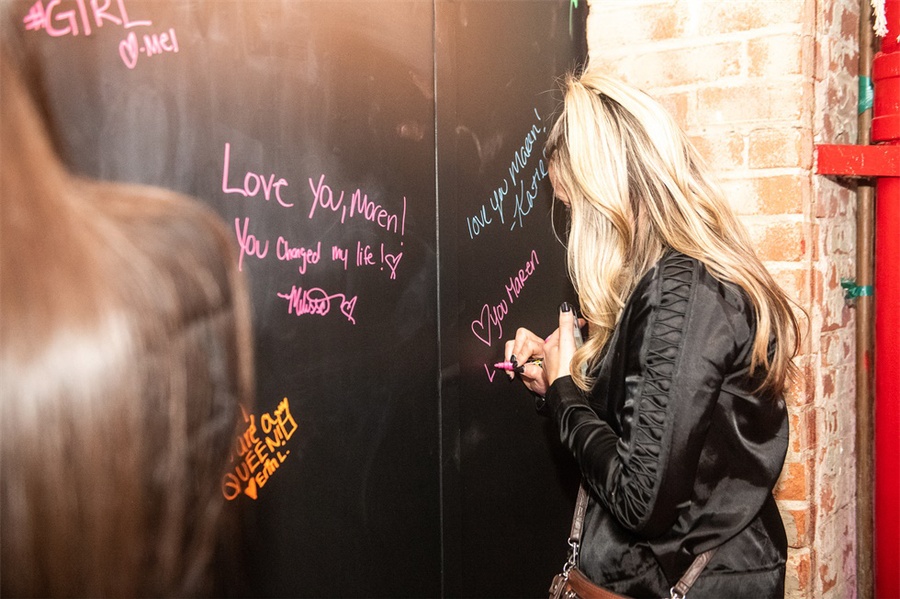 #GIRL
♡-Mel
Love You, Maren!
You Changed my life! ♡
Melissa ♡
love you Maren!
-Katie
♡ you Maren
a
QUEEN!
♥ Erin L.